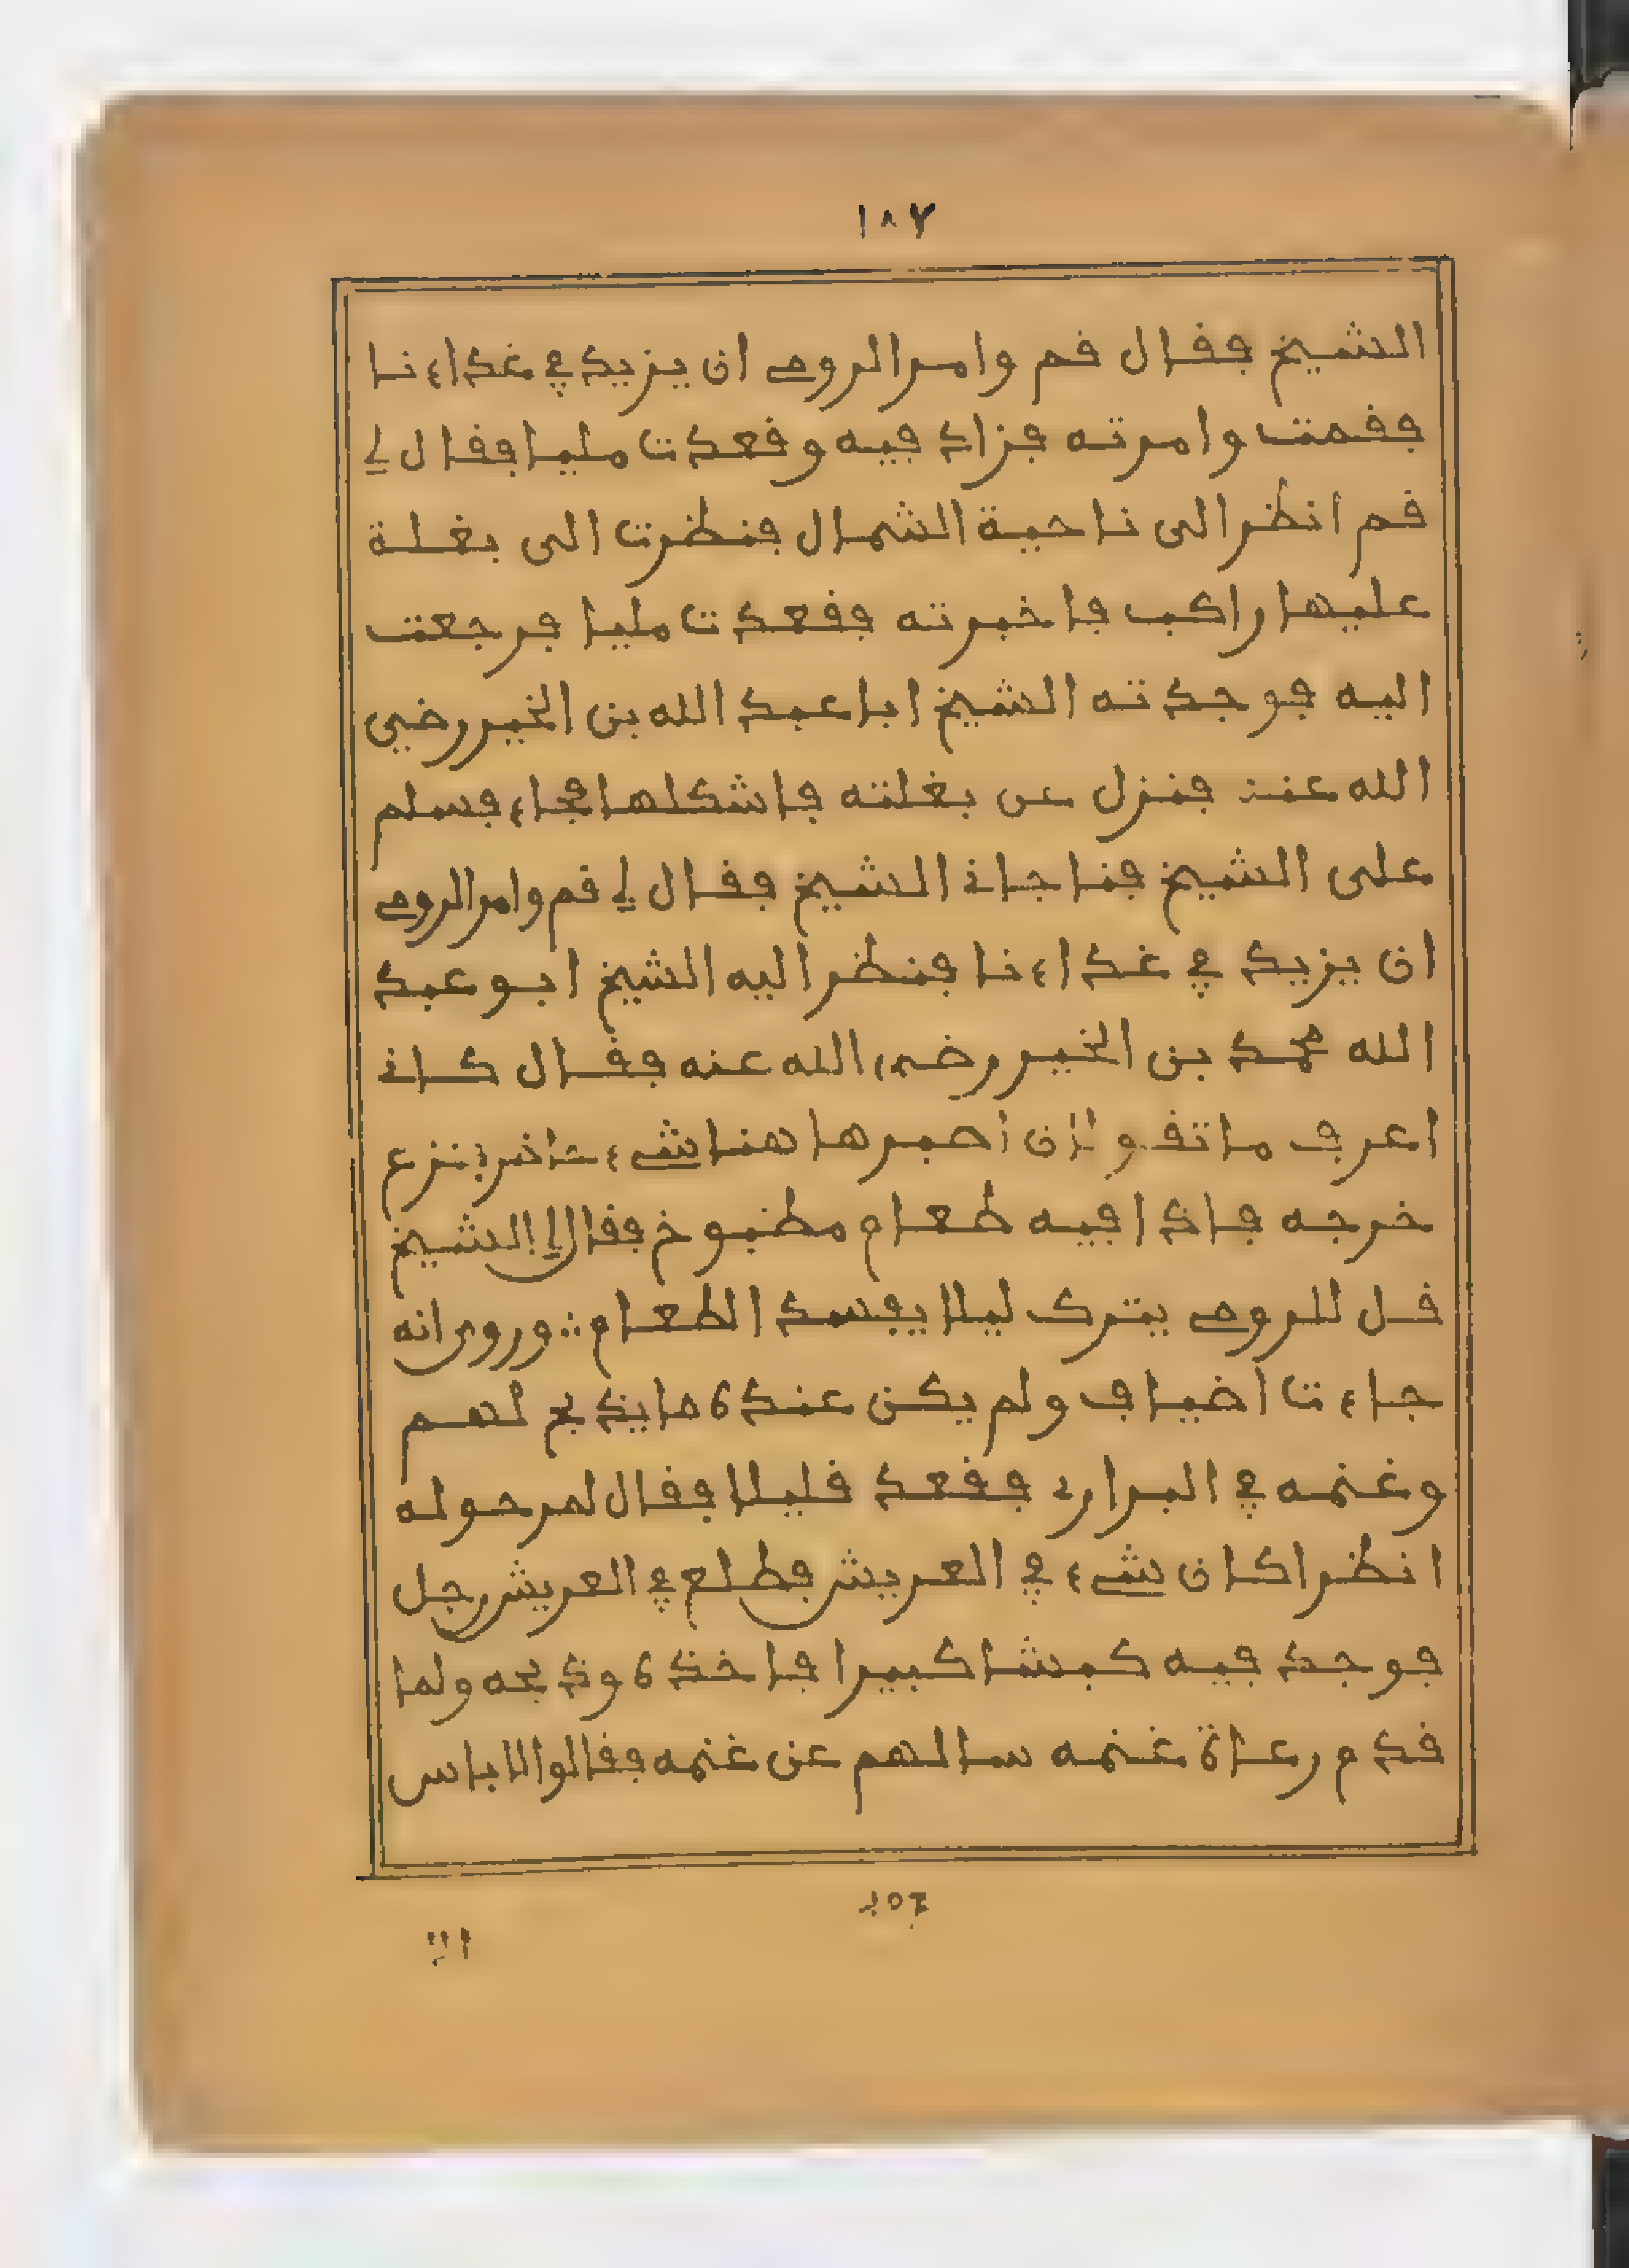 ١٨٧
الشيخ فقال قم وامر الرومي ان يزيد في غداءنا
فقمت وامرته فزاد فيه وقعدت مليا فقال لي
قم انظر الى ناحية الشمال فنظرت الى بغلة
عليها راكب فاخبرته فقعدت مليا فرجعت
اليه فوجدته الشيخ ابا عبد الله بن الخير رضي
الله عنه فنزل عن بغلته فاشكلها فجاء فسلم
على الشيخ فناجاه الشيخ فقال لي قم وامر الرومي
ان يزيد في غداءنا فنظر اليه الشيخ ابو عبد
الله محمد بن الخير رضي الله عنه فقال كاني
اعرف ما هاهنا شيء
خرجه فاذا فيه طعام مطبوخ فقال لي الشيخ
قل للرومي يترك ليلا يفسد الطعام وروي انه
جاءت اضياف ولم يكن عنده ما يذبح لهم
وغنمه في البراري فقعد قليلا فقال لمن حوله
انظر اكان شيء في العريش فطلع في العريش رجل
فوجد فيه كبشا كبيرا فاخذه وذبحه ولما
قدم رعاة غنمه سالهم عن غنمه فقالوا لا باس